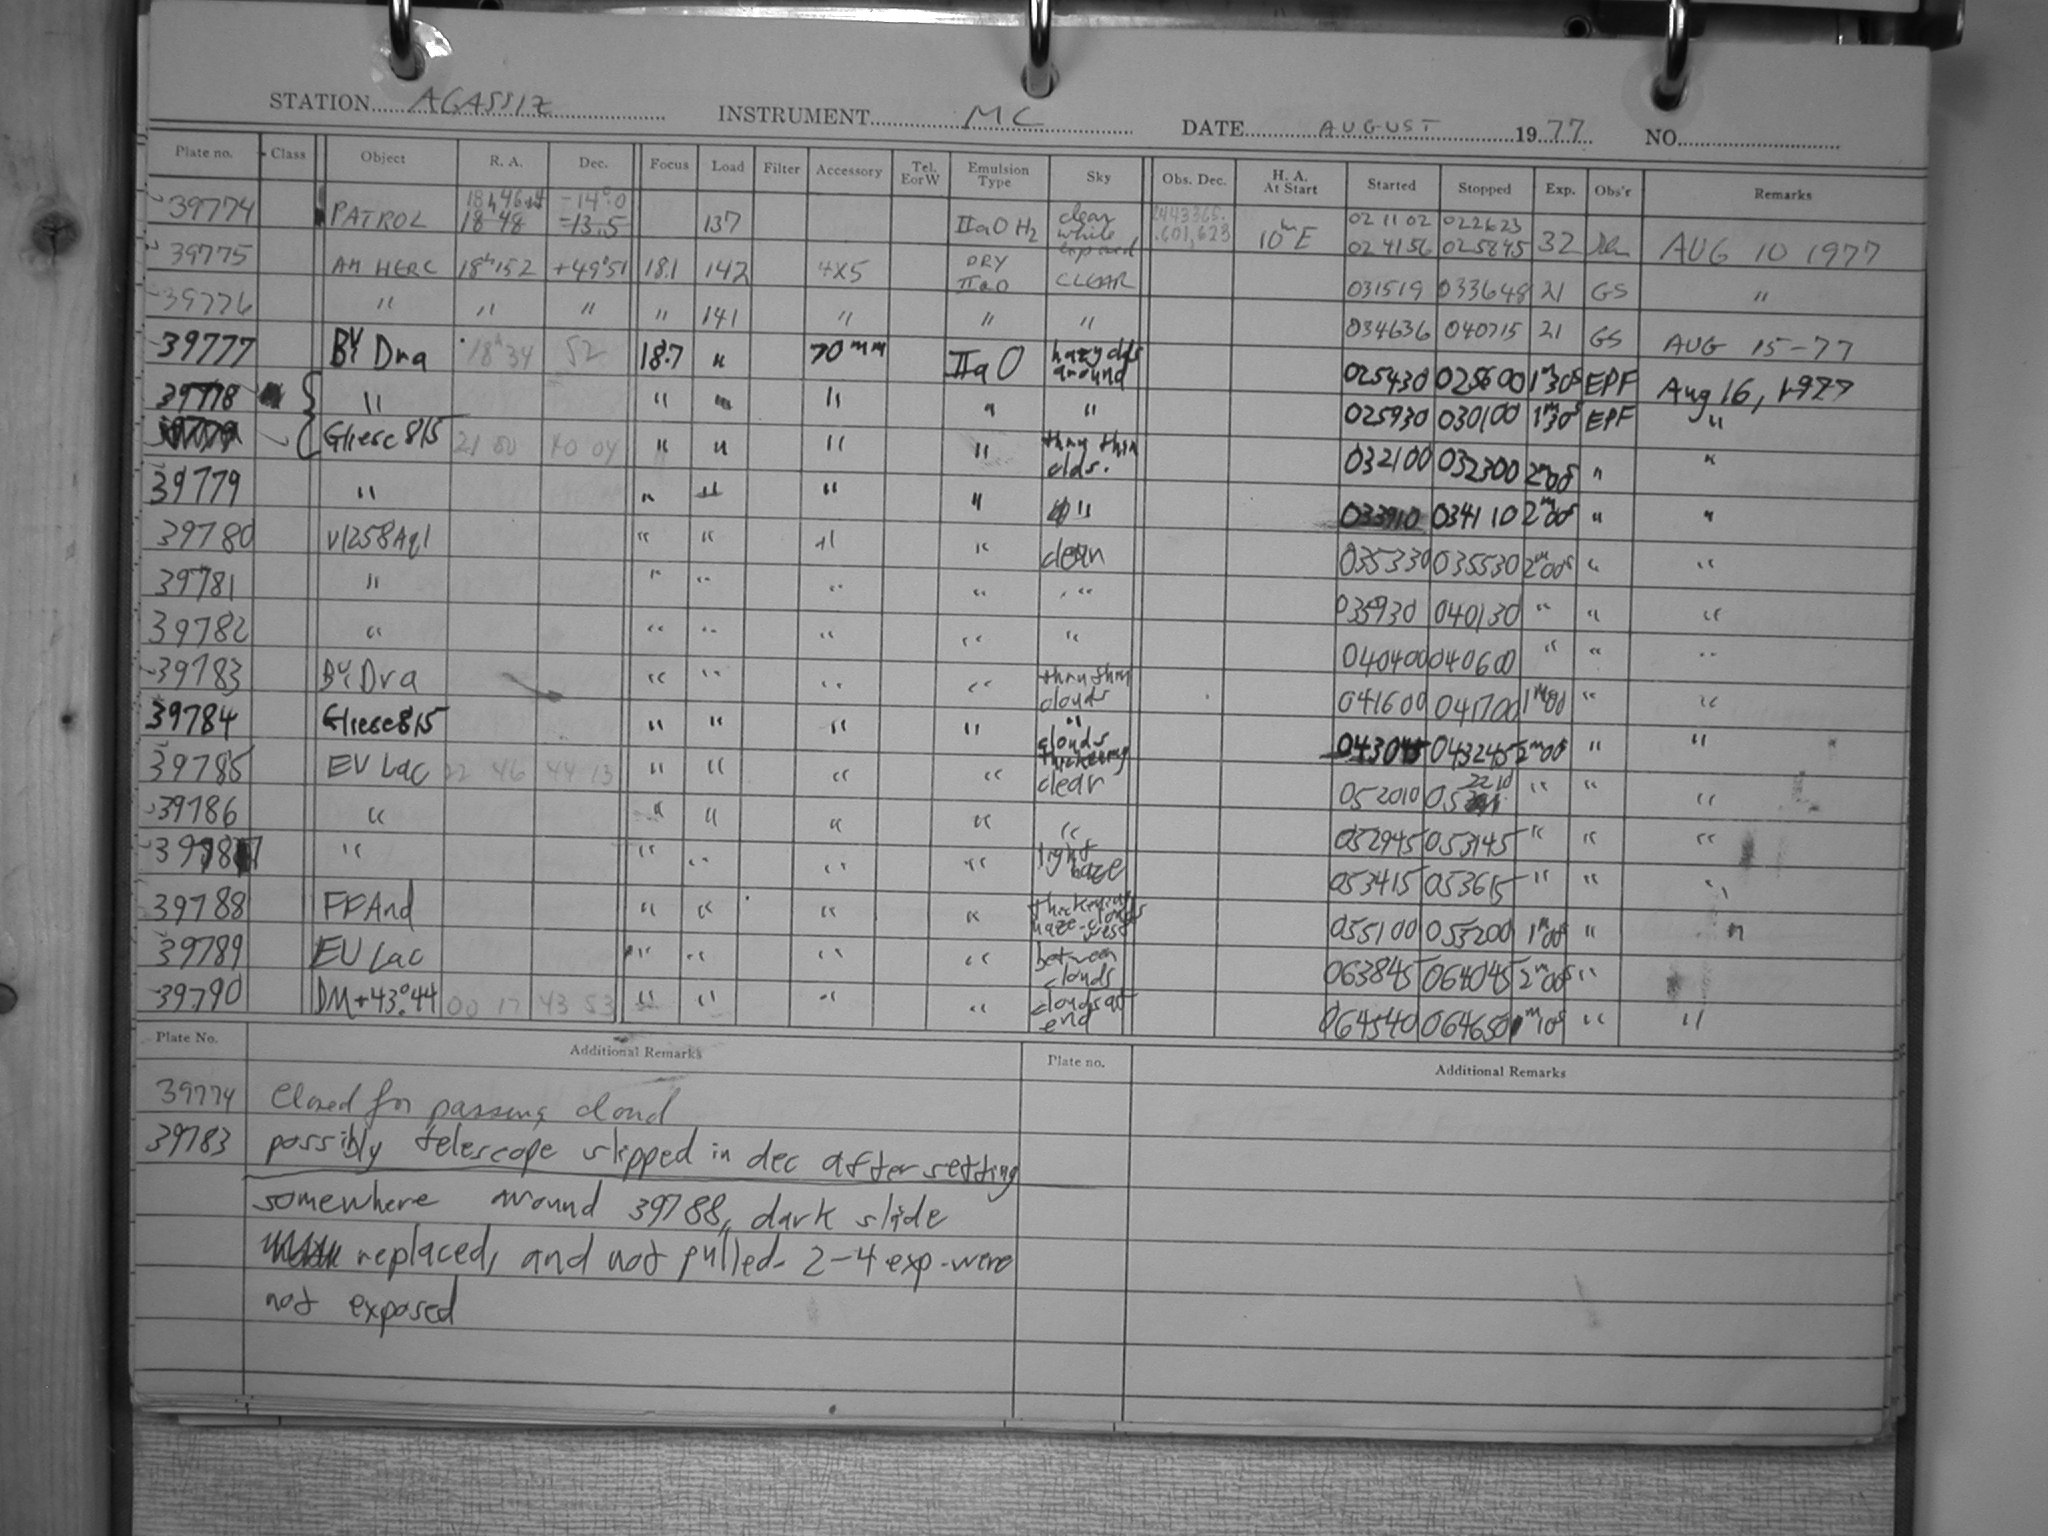 STATION AGASSIZ INSTRUMENT MC DATE AUGUST 1977 NO.
Plate no. Class Object R. A. Dec. Focus Load Filter Accessory Tel. E or W Emulsion Type Sky Obs. Dec. H. A. At Start Started Stopped Exp. Obs'r Remarks
18h46m.4 -14°.0
39774 PATROL 18h48 -13.5 137 IIaO H2 clear while exposed 2443365. .601,.623 10m E 02 11 02 022623 024156 025845 32 AUG 10 1977
39775 AM HERC 18h152 +49°51 18.1 142 4X5 DRY IIaO CLEAR 031519 033648 21 GS "
39776 " " " " 141 " " " 034636 040715 21 GS AUG 15-77
39777 BY Dra 18h34 52 18.7 " 70mm IIaO hazy clds around 025430 025600 1m30s EPF Aug 16, 1977
39778 " " " " " 025930 030100 1m30s EPF "
Gliese 815 21 00 40 04 " " " " thru thin clds. 032100 032300 2m00s " "
39779 " " " " " " 033910 034110 2m00s " "
39780 V1258Aql " " " " clear 035330 035530 2m00s " "
39781 " " " " " " 035930 040130 " " "
39782 " " " " " " 040400 040600 " " "
39783 BY Dra " " " " thru thin clouds 041600 041700 1m00 " "
39784 Gliese 815 " " " " " clouds thickening 043045 043245 2m00s " "
39785 EV Lac 22 46 44 13 " " " " clear 052010 052210 " " "
39786 " " " " " " 052945 053145 " " "
39787 " " " " " light haze 053415 053615 " " "
39788 FF And " " " " thickening haze-clouds west 055100 055200 1m00s " "
39789 EV Lac " " " " between clouds 063845 064045 2m00s "
39790 DM+43°44 00 17 43 53 " " " " clouds at end 064540 064650 1m10s " "
Plate No. Additional Remarks Plate no. Additional Remarks
39774 Closed for passing cloud
39783 possibly telescope slipped in dec after setting
somewhere around 39788, dark slide
replaced, and not pulled- 2-4 exp. were
not exposed